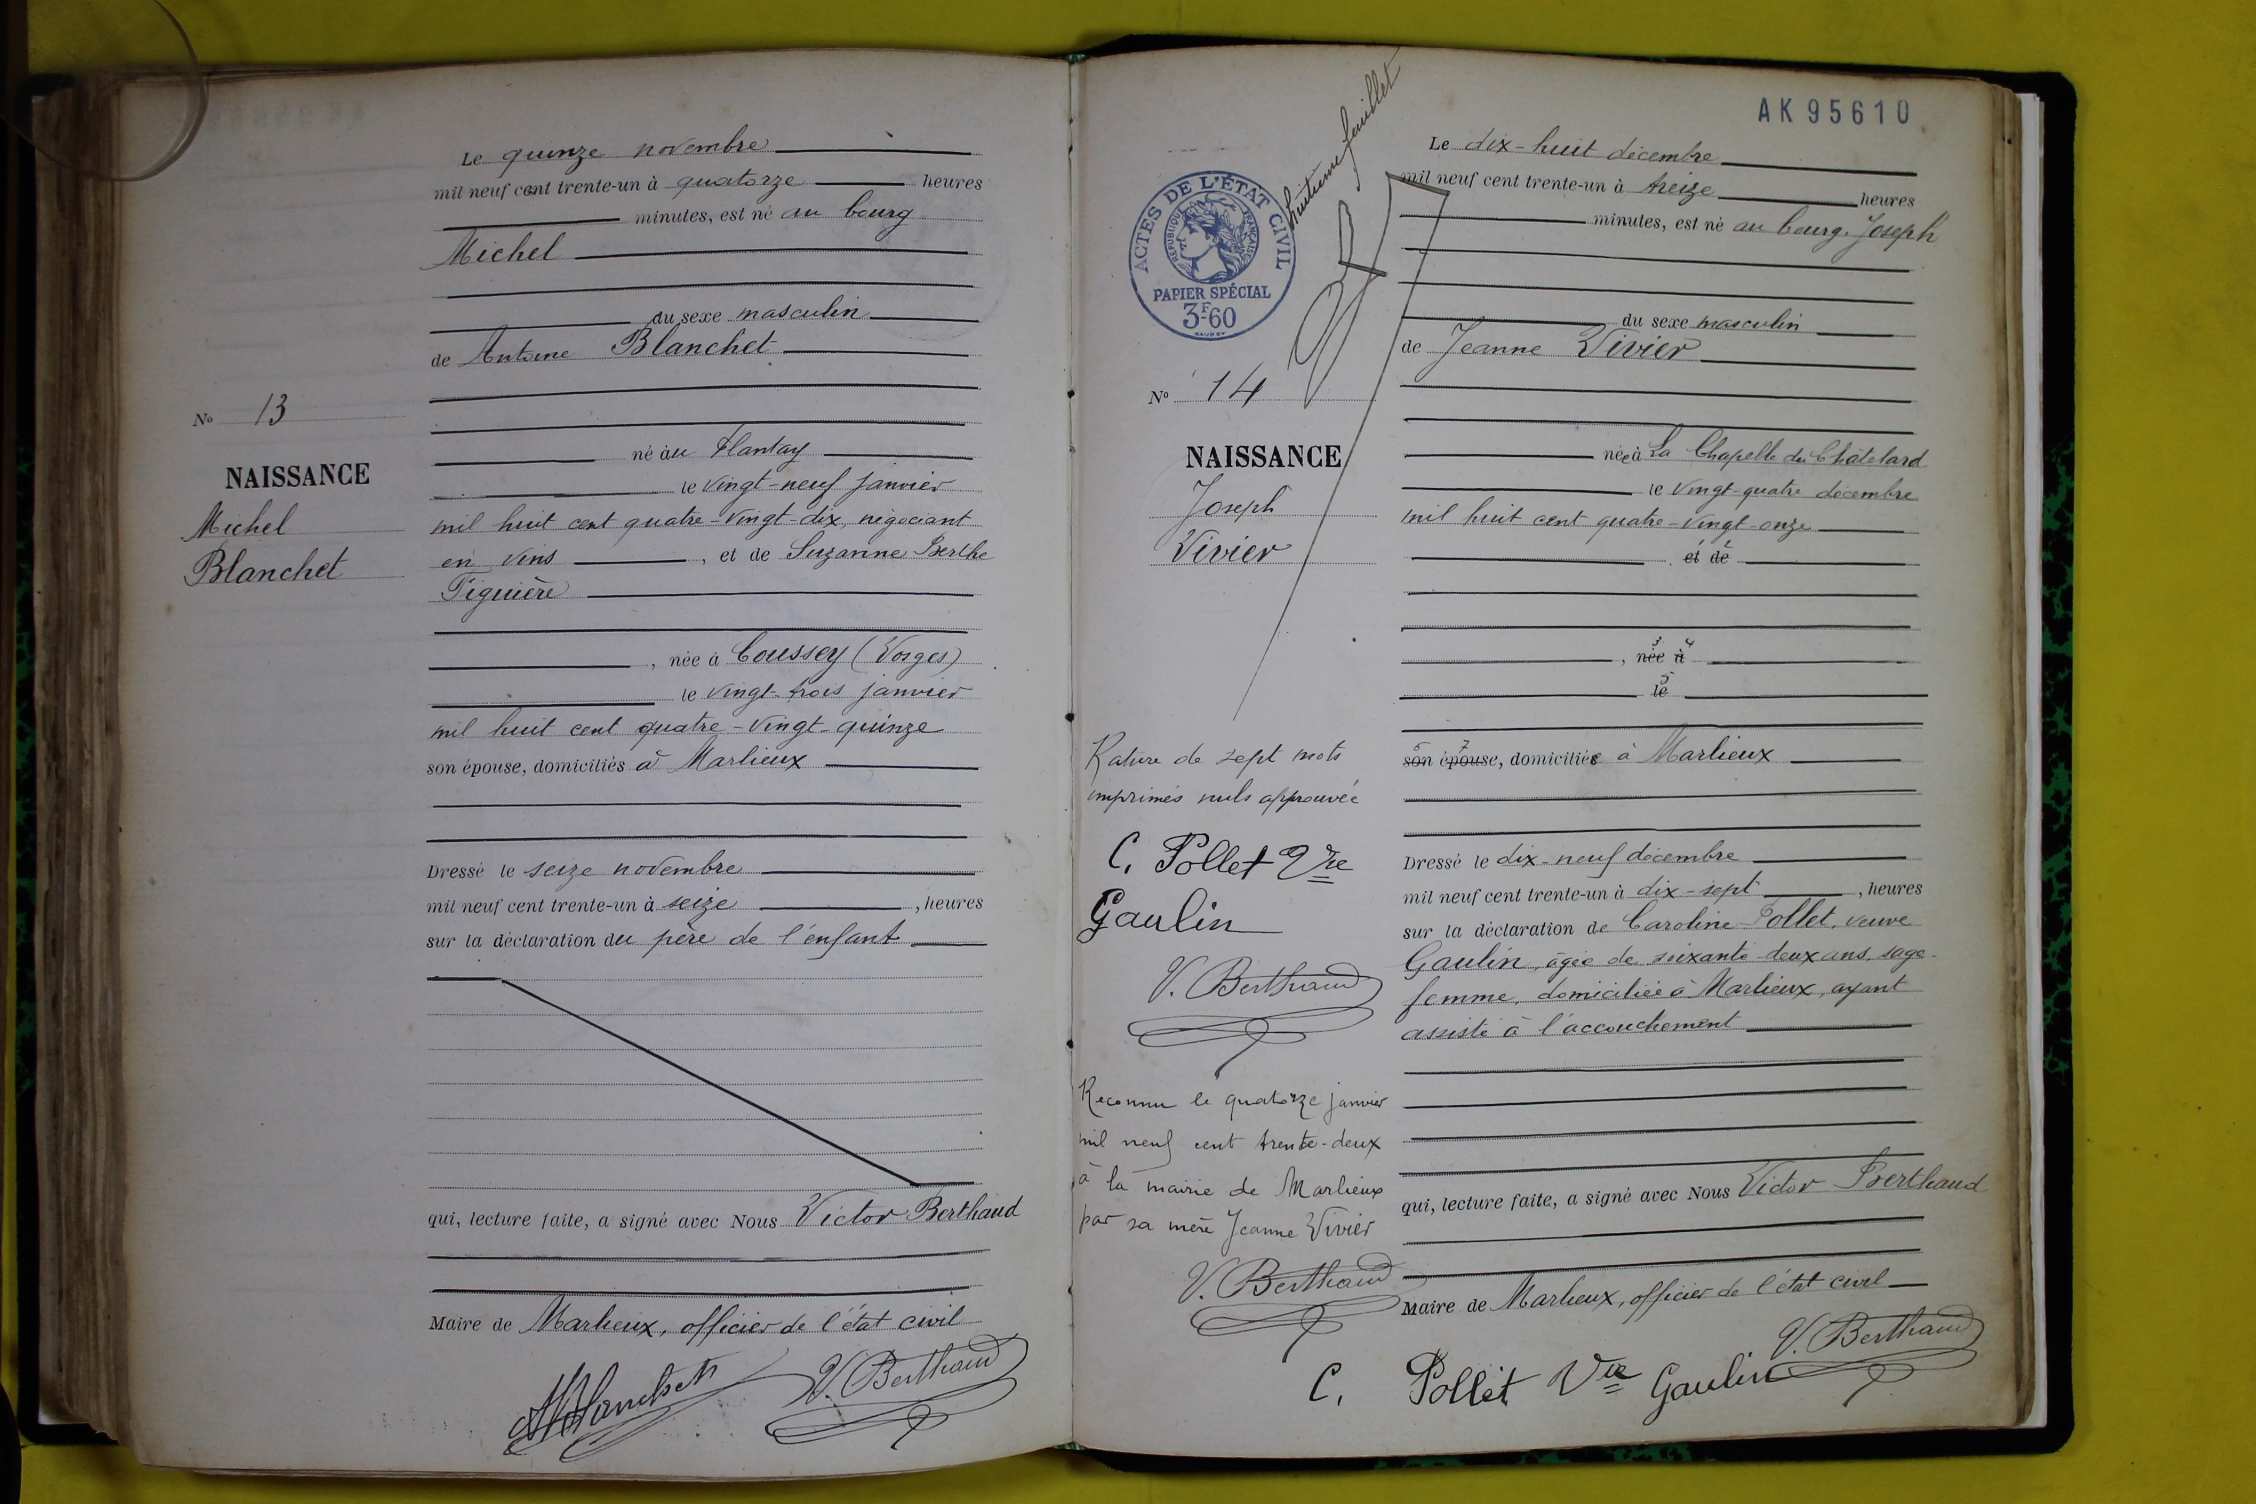 Le quinze novembre
mil neuf cent trente-un à quatorze heures
minutes, est né au bourg
Michel
du sexe masculin
de Antoine Blanchet
No 13
NAISSANCE
Michel
Blanchet
né au Plantay
le vingt-neuf janvier
mil huit cent quatre-vingt-dix, négociant
en vins, et de Suzanne Berthe
Piguière
, née à Coussey (Vosges)
le vingt-trois janvier
mil huit cent quatre-vingt-quinze
son épouse, domiciliés à Marlieux
Dressé le seize novembre
mil neuf cent trente-un à seize, heures
sur la déclaration du père de l'enfant
qui, lecture faite, a signé avec Nous Victor Berthaud
Maire de Marlieux, officier de l'état civil
Blanchet V. Berthaud
AK 95610
huitième feuillet
ACTES DE L'ÉTAT CIVIL
RÉPUBLIQUE FRANÇAISE
PAPIER SPÉCIAL
3F60
No 14
NAISSANCE
Joseph
Vivier
Rature de sept mots
imprimés nuls approuvée
C. Pollet Vve
Gaulin
V. Berthaud
Reconnu le quatorze janvier
mil neuf cent trente-deux
à la mairie de Marlieux
par sa mère Jeanne Vivier
V. Berthaud
Le dix-huit décembre
mil neuf cent trente-un à treize heures
minutes, est né au bourg, Joseph
du sexe masculin
de Jeanne Vivier
née à La Chapelle du Châtelard
le vingt-quatre décembre
mil huit cent quatre-vingt-onze
1 2
, et de
3 4
, née à
5
le
6 7
son épouse, domiciliée à Marlieux
Dressé le dix-neuf décembre
mil neuf cent trente-un à dix-sept, heures
sur la déclaration de Caroline Pollet, veuve
Gaulin, âgée de soixante-deux ans, sage-
femme, domiciliée à Marlieux, ayant
assisté à l'accouchement
qui, lecture faite, a signé avec Nous Victor Berthaud
Maire de Marlieux, officier de l'état civil
V. Berthaud
C. Pollet Vve Gaulin